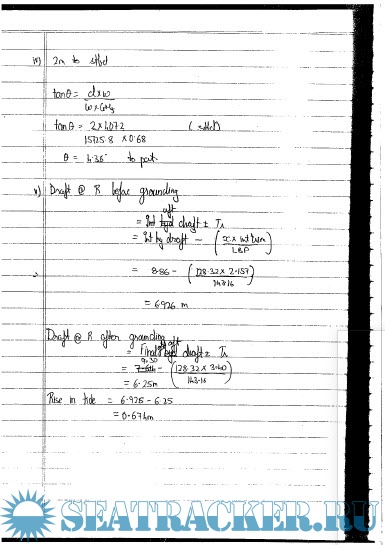 iv) 2m to stbd
tanθ = d×w
w×GMf
tanθ = 2×4072 (stbd)
15725.8 × 0.68
θ = 4.36° to port
v) Draft @ R before grounding
aft
= Int draft ± Ta
= Int draft − (x × int trim)
LBP
= 8.86 − (128.32 × 2.157)
143.16
= 6.926 m
Draft @ R after grounding
aft
= Final draft ± Ta
9.30
= − (128.32 × 3.40)
143.16
= 6.25m
Rise in tide = 6.926 − 6.25
= 0.674m
SEATRACKER.RU